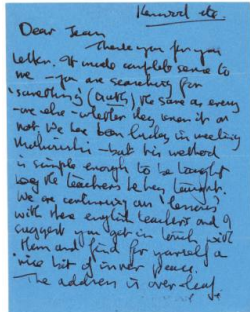 Kenwood etc.
Dear Jean
Thank you for your
letter. It made complete sense to
me - you are searching for
'something' (truth) the same as every
-one else - whether they know it or
not. We has been lucky in meeting
Maharishi - but his method
is simple enough to be taught
by the teachers he has taught.
We are continuing our 'lessons'
with these english teachers and I
suggest you get in touch with
them and find for yourself a
nice bit of inner peace.
The address is over leaf.